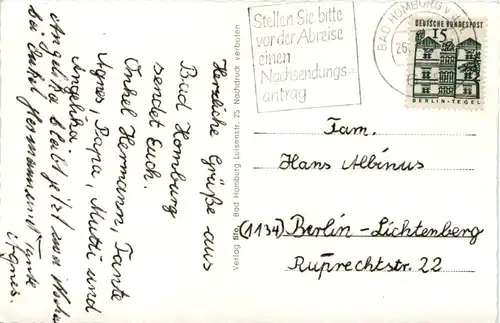 Herzliche Grüße aus
Bad Homburg
sendet Euch.
Onkel Hermann, Tante
Agnes, Papa, Mutti und
Angelika.
Angelika bleibt jetzt zum
bei Onkel Hermann und Tante
Agnes.
Verlag Bad Homburg Luisenstr. 25 Nachdruck verboten
Stellen Sie bitte
vor der Abreise
einen
Nachsendungs-
antrag
BAD HOMBURG v
26.
DEUTSCHE BUNDESPOST
15
BERLIN-TEGEL
Fam.
Hans Albinus
(1134) Berlin-Lichtenberg
Ruprechtstr. 22